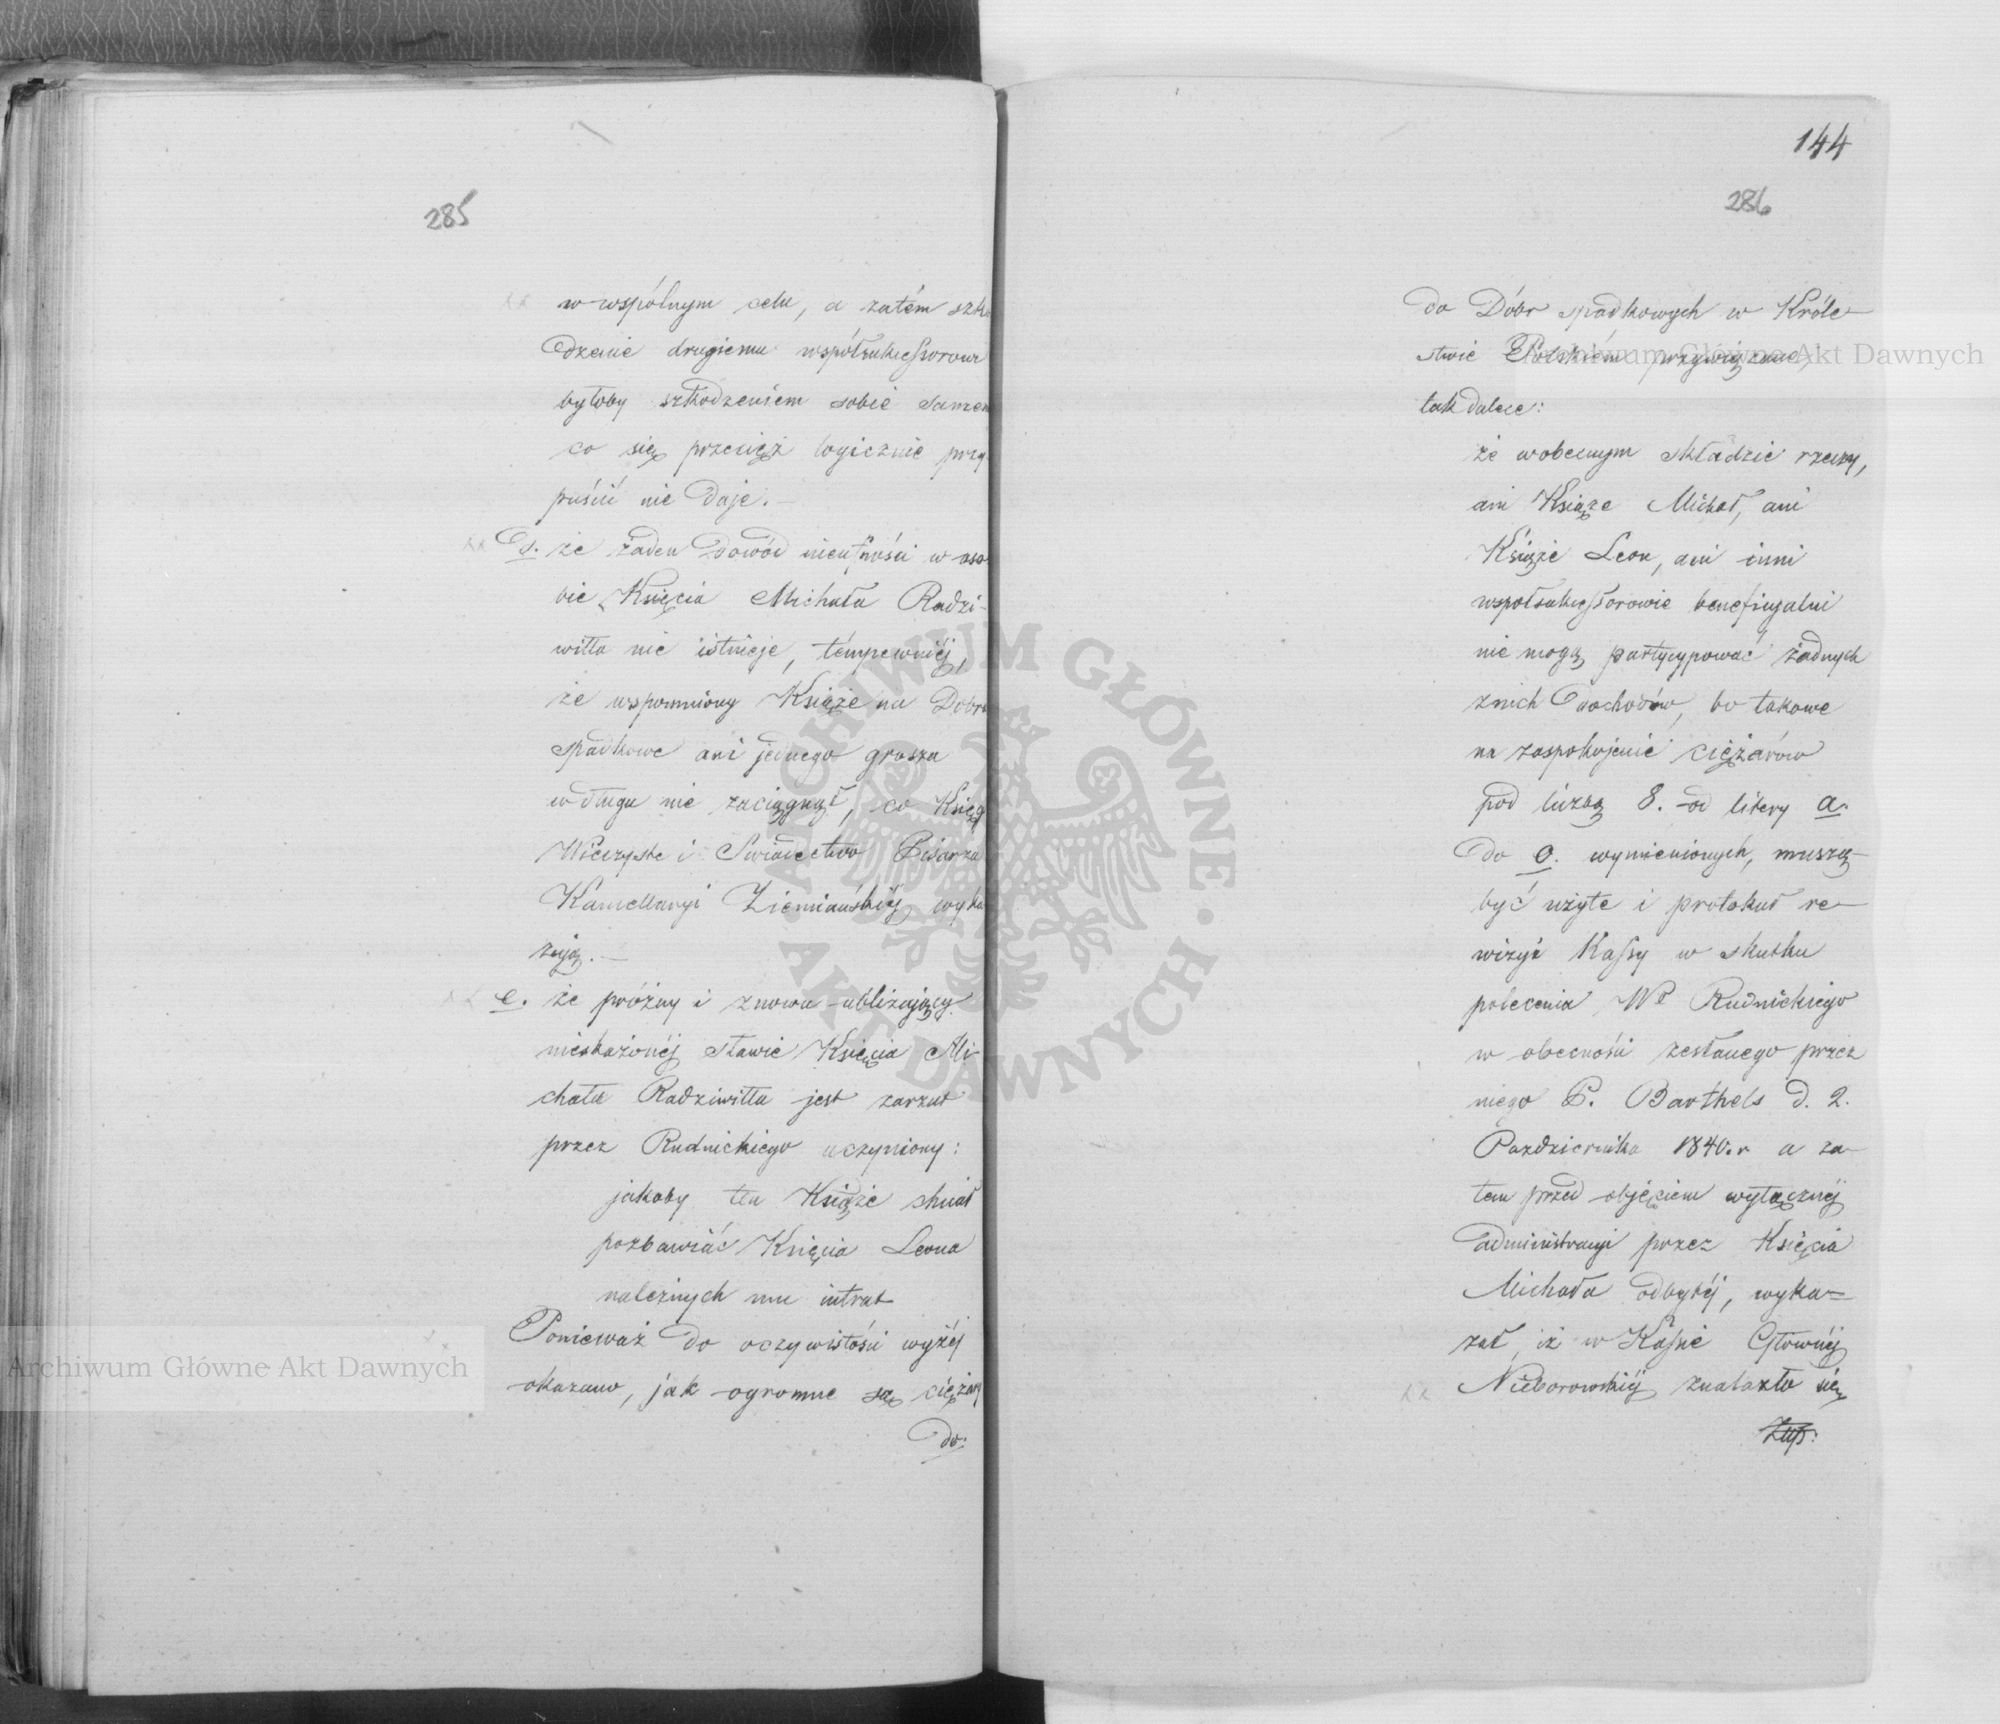 285
w wspólnym celu, a zatém szko
dzenie drugiemu współsukcessorowi
byłoby szkodzeniem sobie samem
co się przecięż logicznie przy
puścić nie daje. —
d. że żaden dowód nieufności w oso
bie Księcia Michała Radzi-
wiłła nie istnieje, témpewniéj,
że wspomniony Książe na Dobra
spadkowe ani jednego grosza
w długu nie zaciągnął, co Księgi
Wieczyste i Swiadectwo Pisarza
Kancellaryi Ziemiańskiéj wyka
zują. —
e. że próżny i znowu ubliżający
nieskażonéj sławie Księcia Mi-
chała Radziwiłła jest zarzut
przez Rudnickiego uczyniony:
jakoby ten Książe
pozbawiać Księcia Leona
należnych mu intrat
Ponieważ do oczywistości wyżéj
okazano, jak ogromne są ciężary
do:
144
286
do Dóbr spadkowych w Króle-
stwie Polskiém przywiązane,
tak dalece:
że wobecnym składzie rzeczy,
ani Książe Michał, ani
Książe Leon, ani inni
współsukcessorowie beneficyalni
nie mogą partycypować żadnych
znich dochodów, bo takowe
na zaspokojenie ciężarów
pod liczbą 8. od litery a.
do o. wymienionych, muszą
być użyte i protokuł re-
wizyi Kassy w skutku
polecenia Wo Rudnickiego
w obecności zesłanego przez
niego P. Barthels d. 2.
Pazdziernika 1840.r a za-
tem przed objęciem wyłącznéj
administracyi przez Księcia
Michała odbytéj, wyka-
zał, iż w Kassie Głównéj
Nieborowskiéj znalazło się
Archiwum Główne Akt Dawnych
Archiwum Główne Akt Dawnych
ARCHIWUM GŁÓWNE · AKT DAWNYCH ·